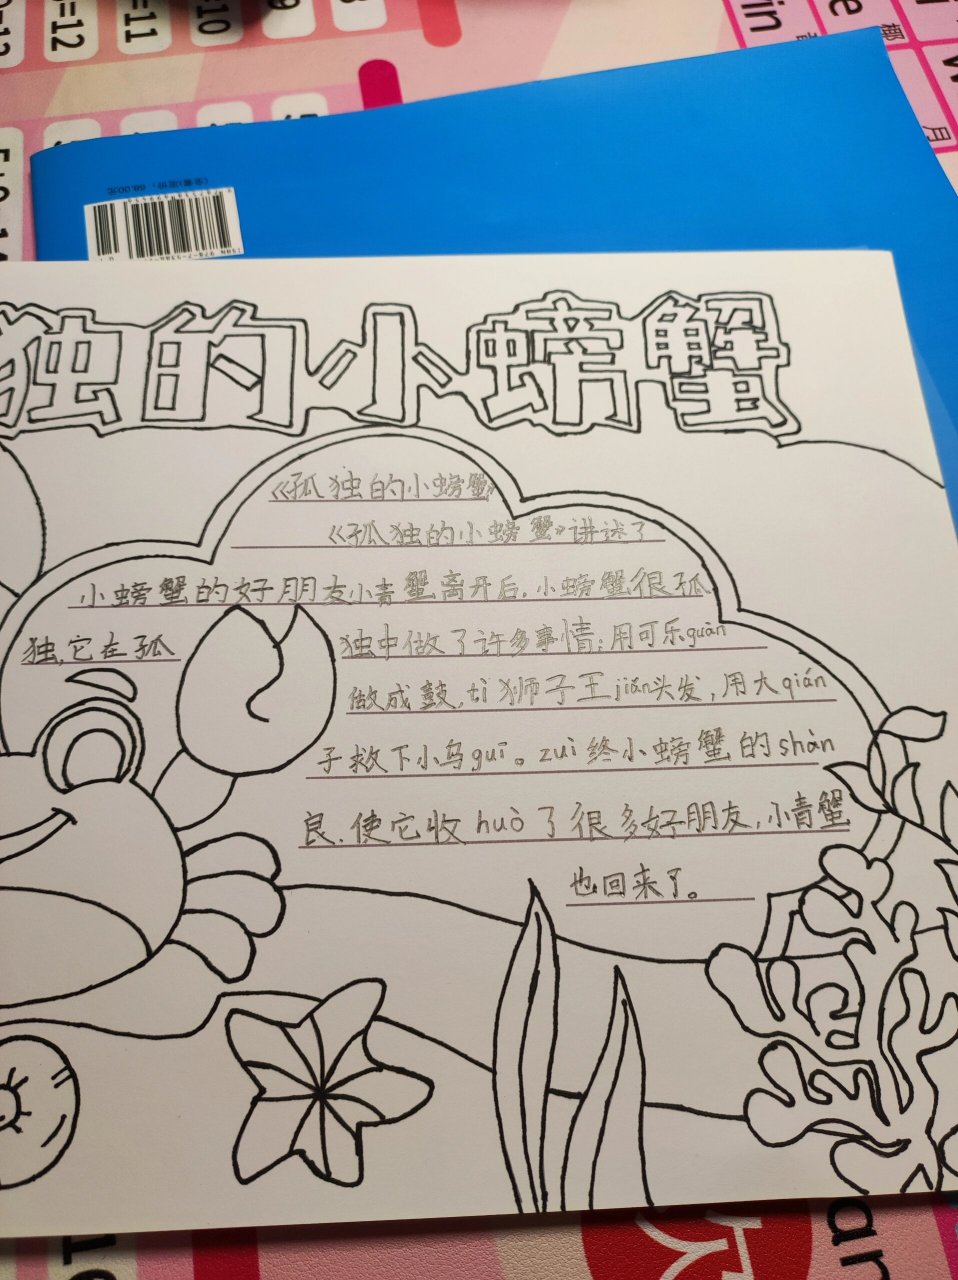 独的小螃蟹
《孤独的小螃蟹》
《孤独的小螃蟹》讲述了
小螃蟹的好朋友小青蟹离开后,小螃蟹很孤
独,它在孤
独中做了许多事情:用可乐guàn
做成鼓,tì狮子王jiǎn头发,用大qián
子救下小乌guī。zuì终小螃蟹的shàn
良,使它收huò了很多好朋友,小青蟹
也回来了。